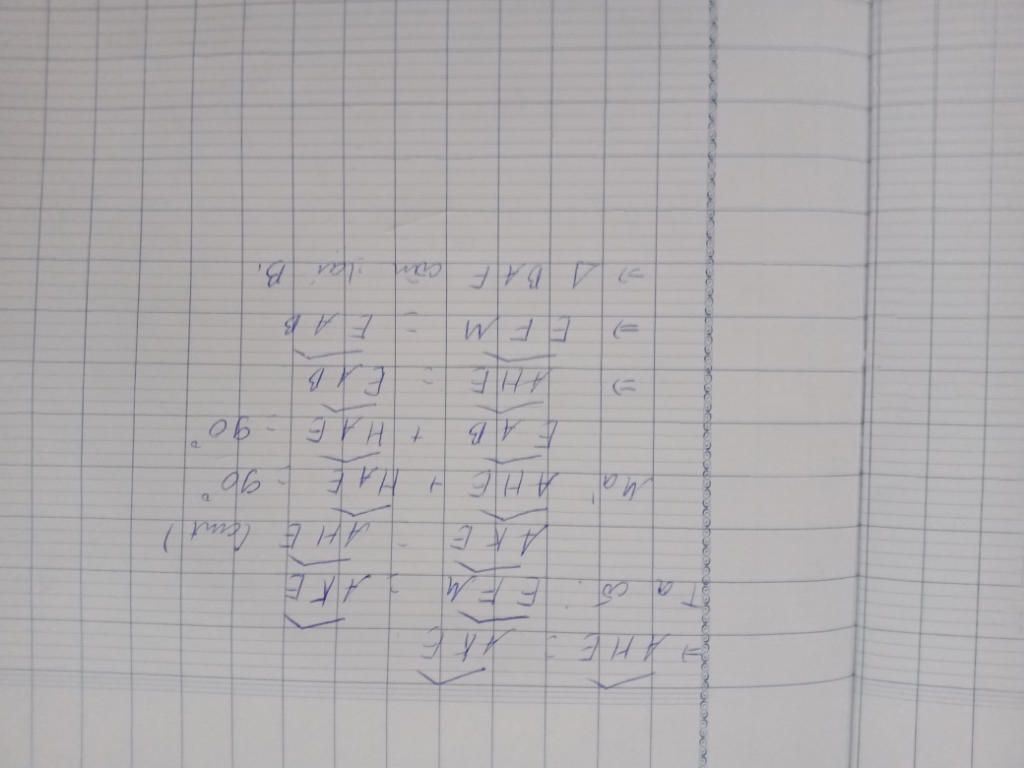 ⇒ AHE = AKE
Ta có : EFM = AKE
AKE = AHE (cmt)
Mà AHE + HAE = 90°
EAB + HAE = 90°
⇒ AHE = EAB
⇒ EFM = EAB
⇒ Δ BAF cân tại B.